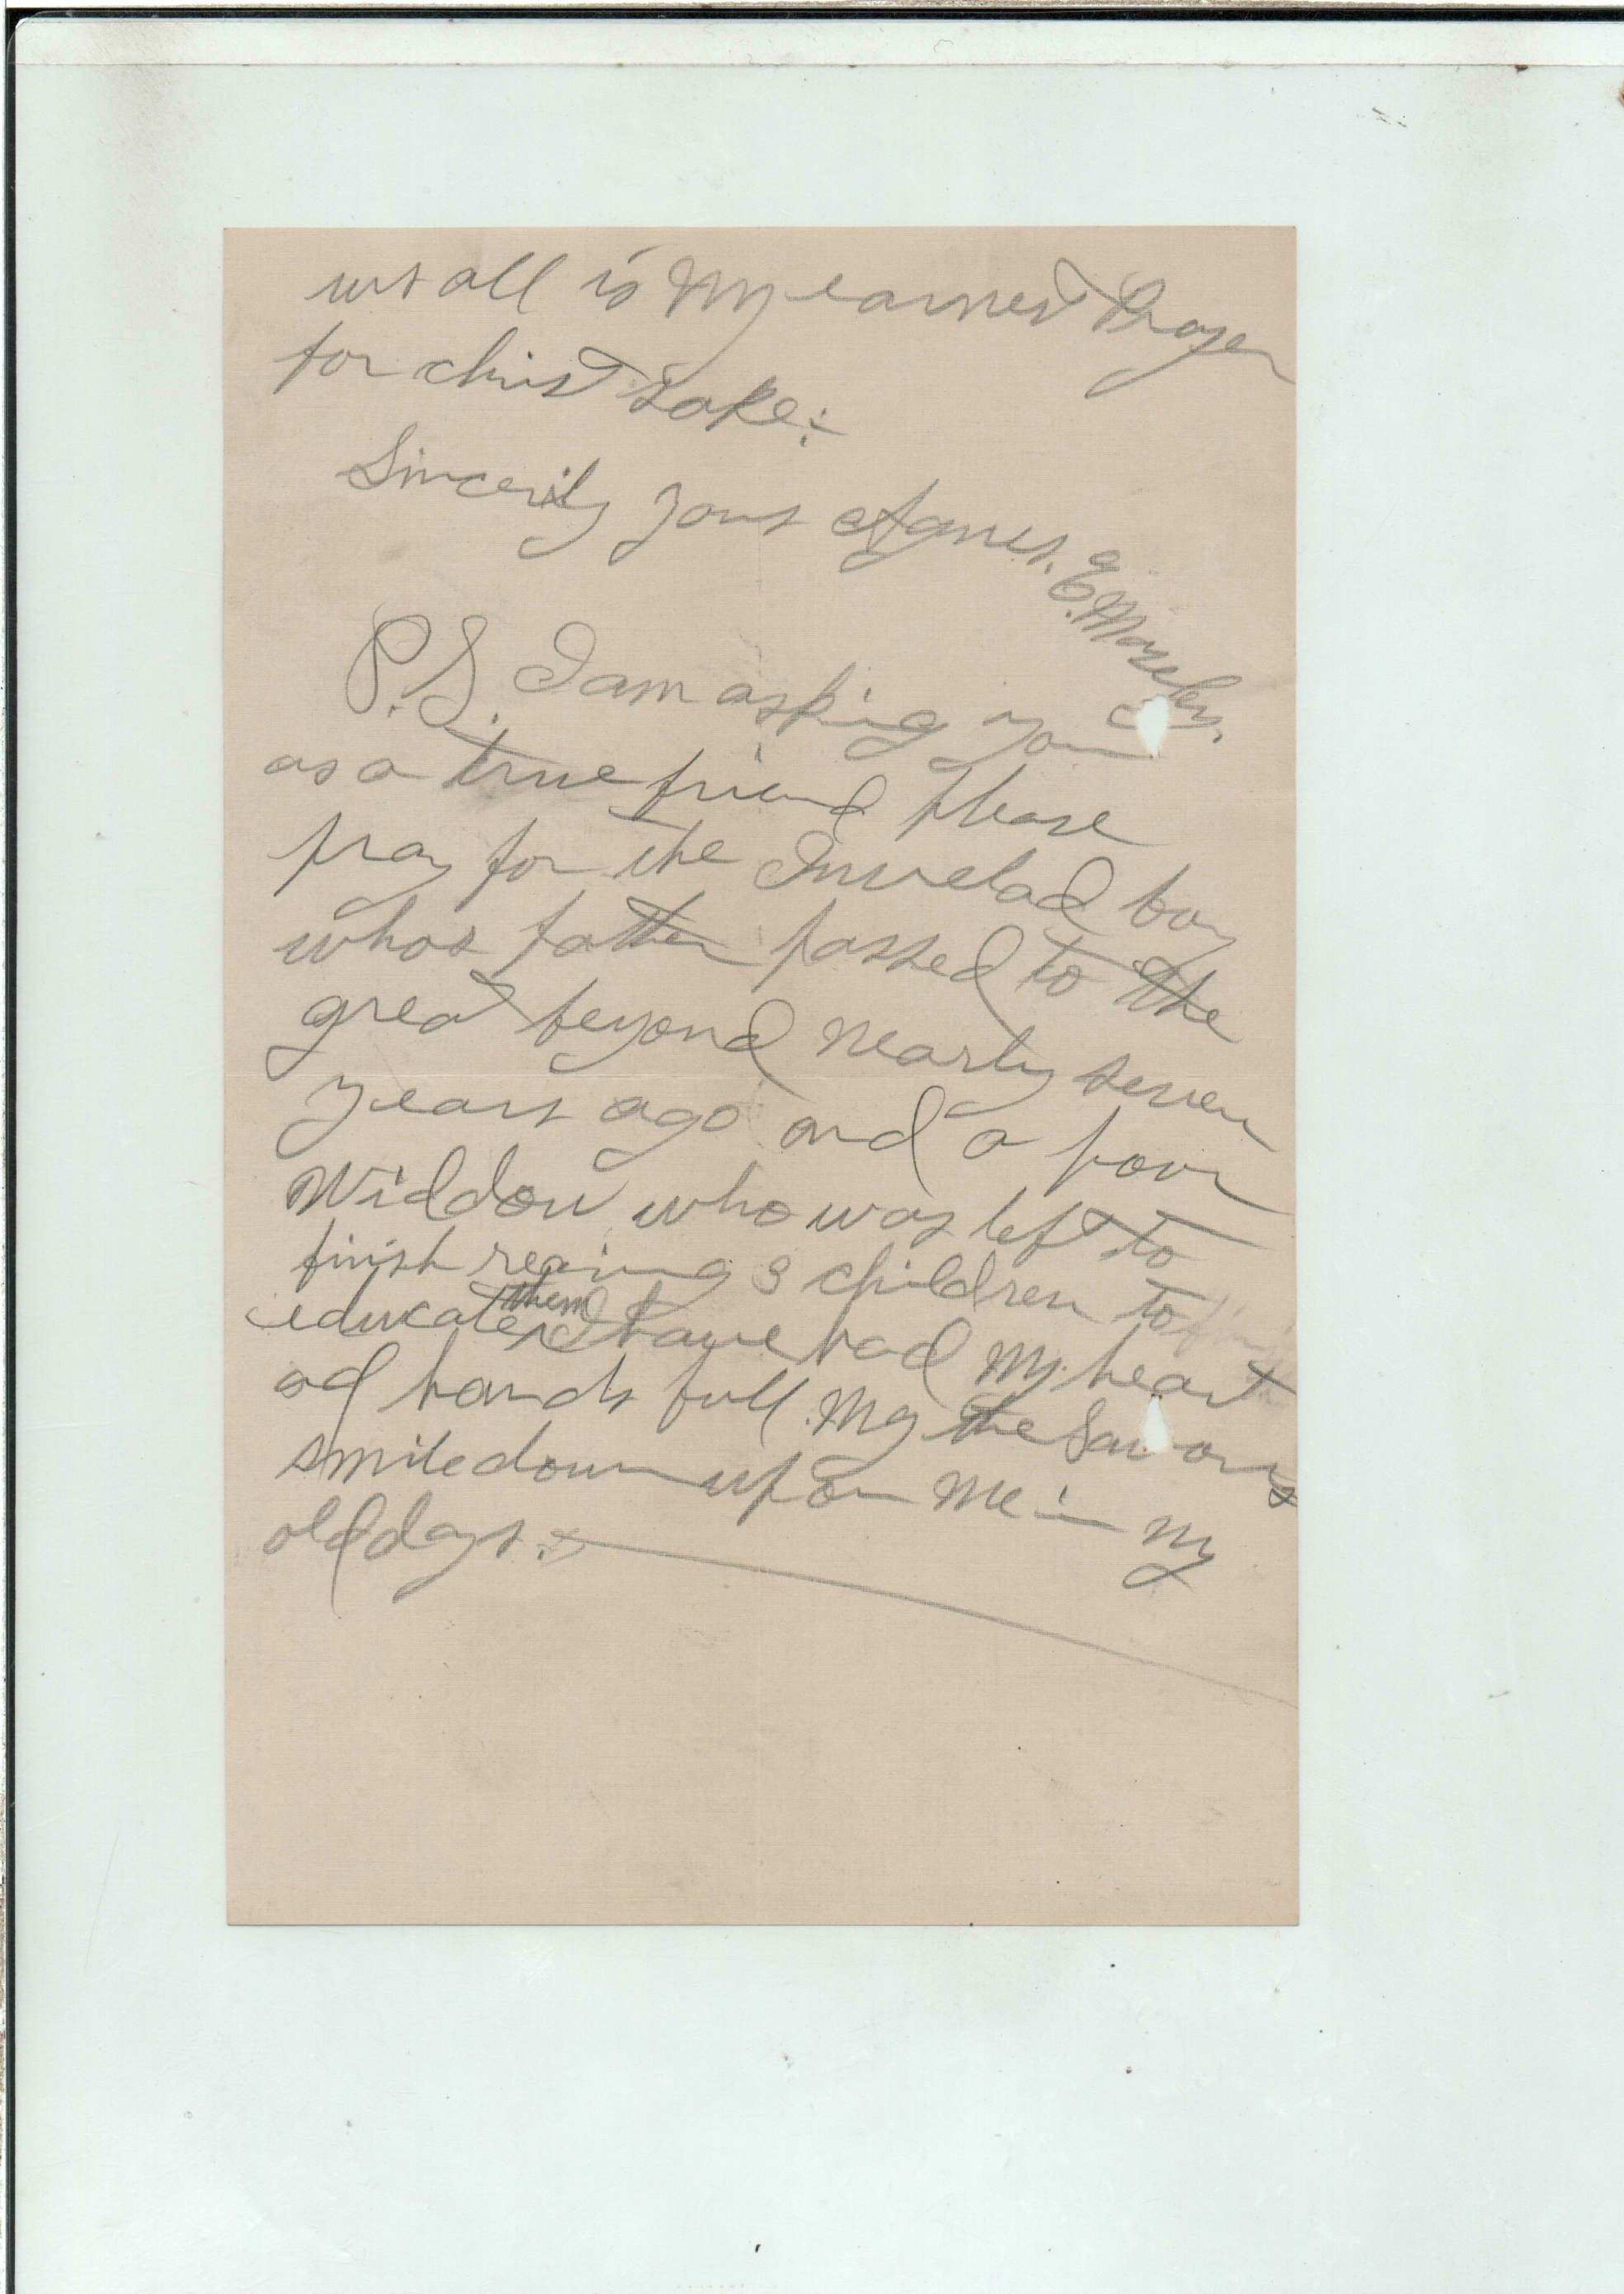 us all is My earnest Prayer
for christ sake:-
Sincerily yours Agnes. E. Moseley.
P.S. I am asking you
as a true friend please
pray for the Invelad boy
whos father passed to the
great beyond nearly seven
years ago and a poor
Widdow who was left to
finish rearing 3 children to
educate them I have had My heart
ad hands full. My the Saviours
smile down upon Me in my
old days.